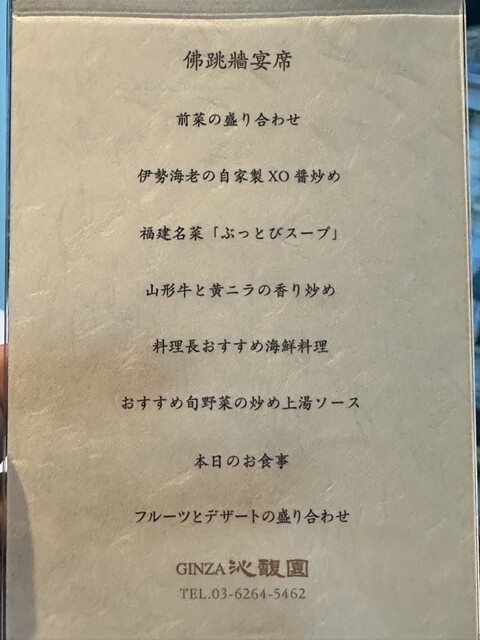 佛跳牆宴席
前菜の盛り合わせ
伊勢海老の自家製XO醬炒め
福建名菜「ぶっとびスープ」
山形牛と黄ニラの香り炒め
料理長おすすめ海鮮料理
おすすめ旬野菜の炒め上湯ソース
本日のお食事
フルーツとデザートの盛り合わせ
GINZA 沁馥園
TEL.03-6264-5462